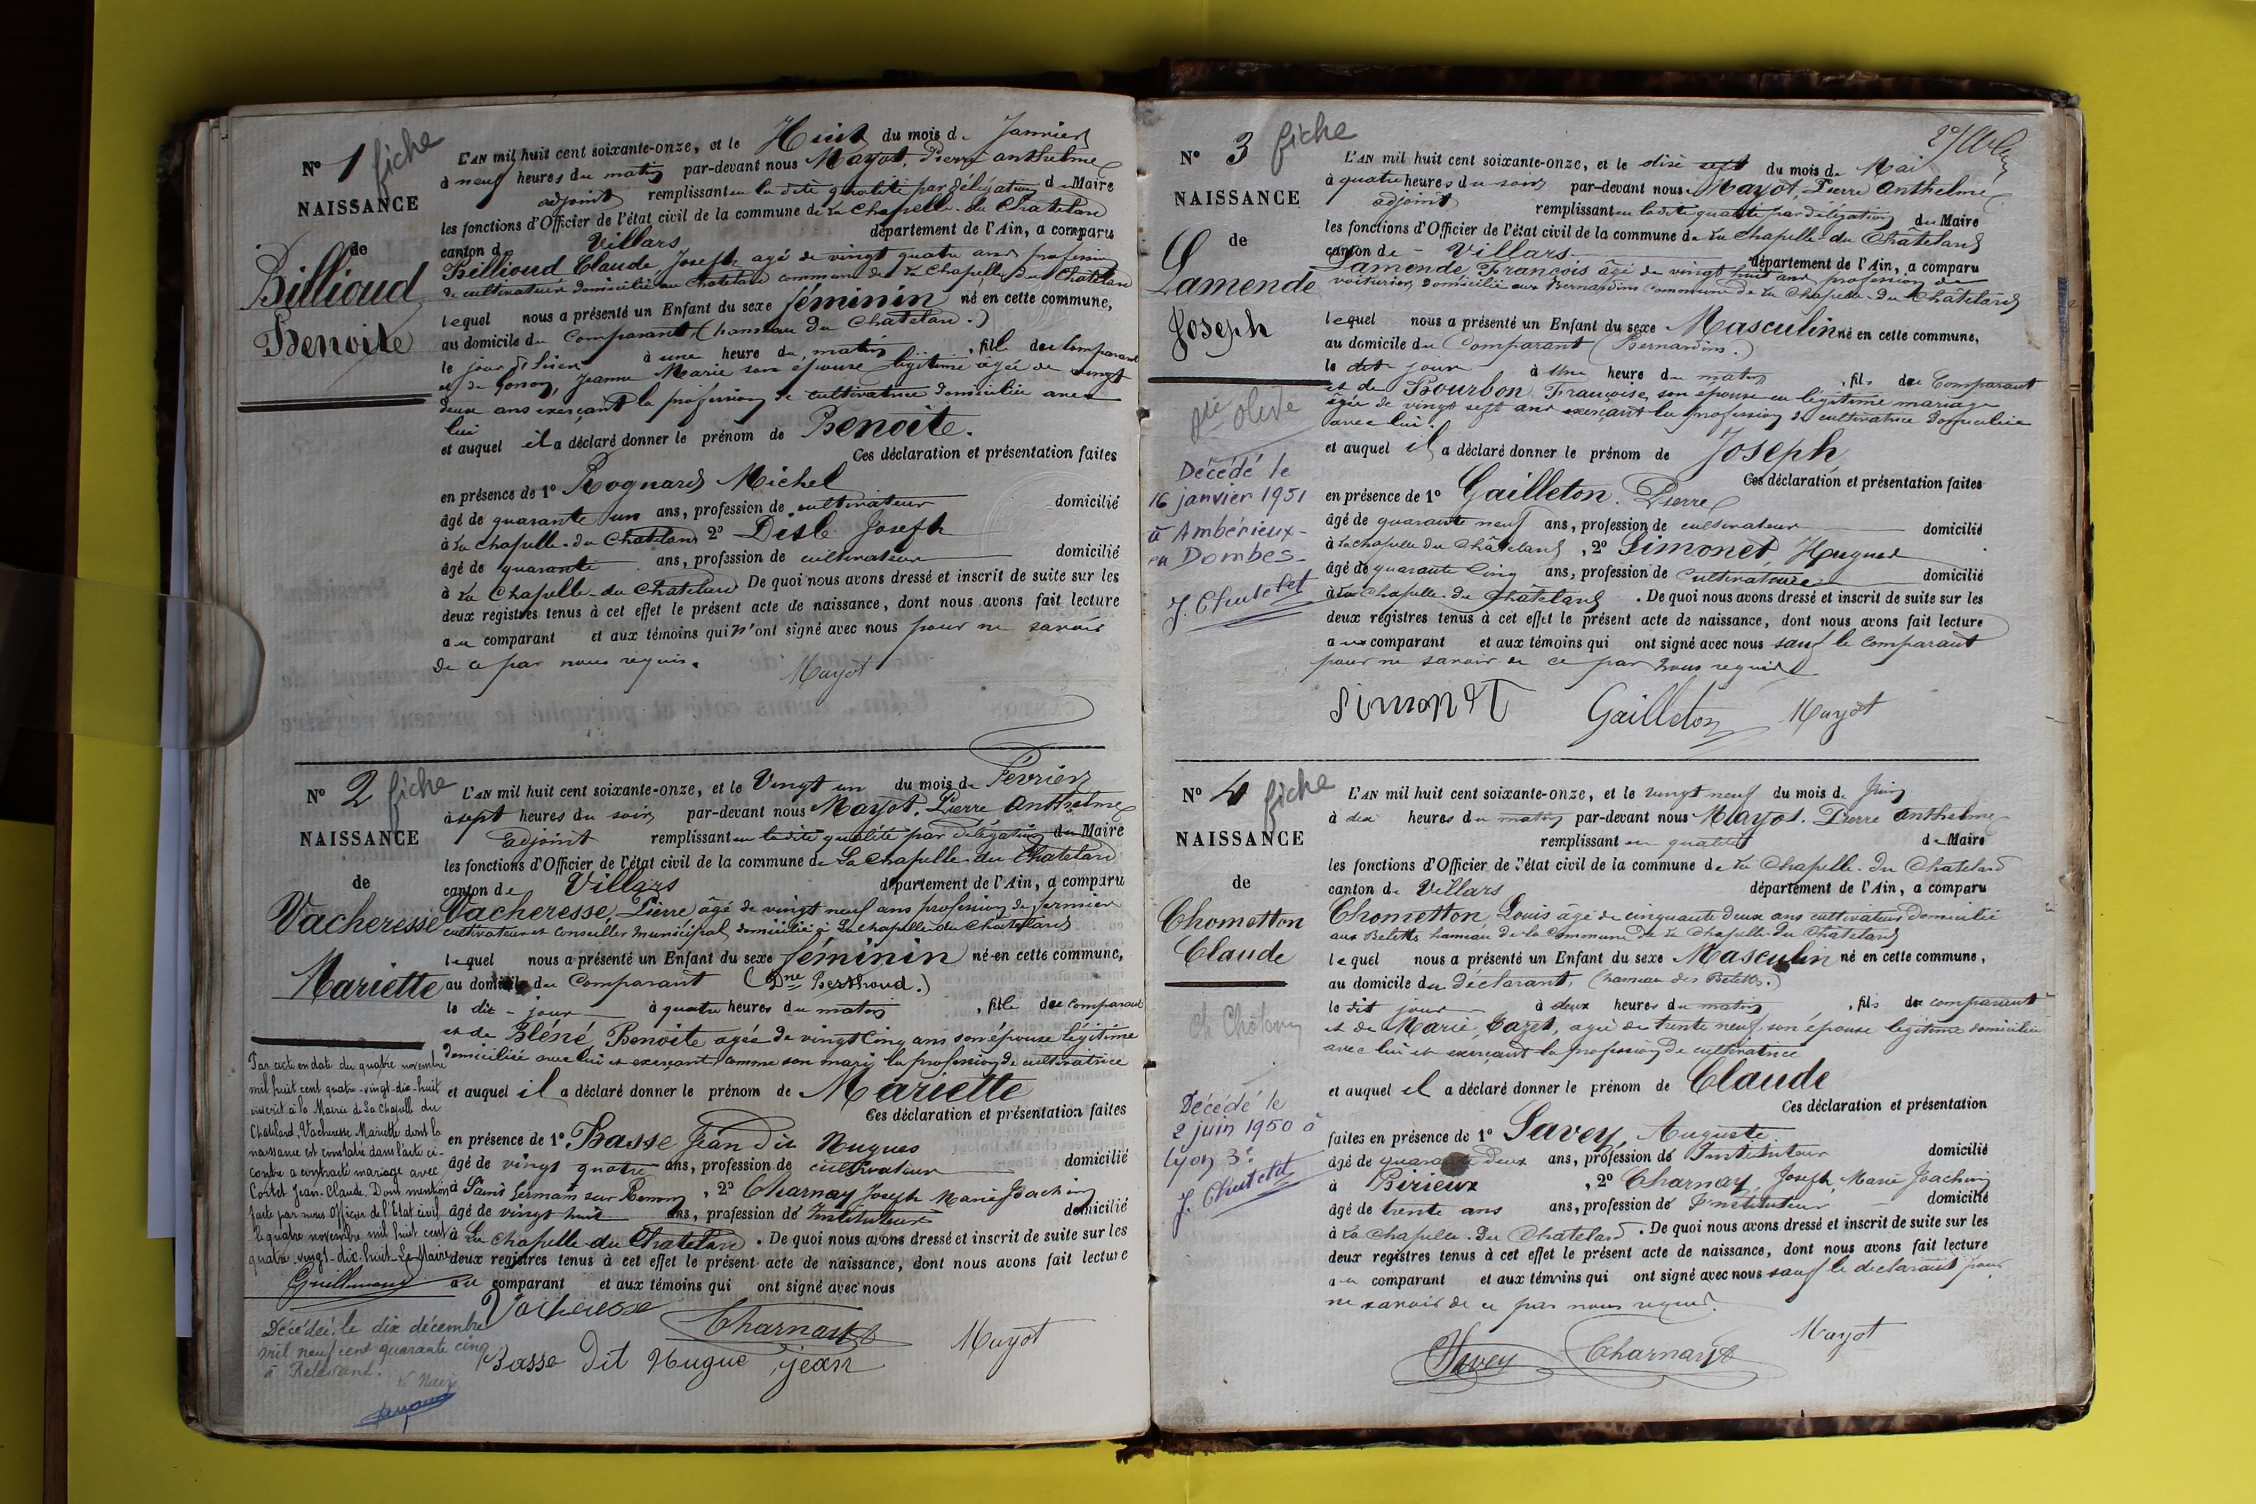 N° 1 fiche
NAISSANCE
de
Billioud
Benoite
L'AN mil huit cent soixante-onze, et le Huit du mois de Janvier
à neuf heures du matin par-devant nous Mayot, Pierre Anthelme
adjoint remplissant en la dite qualité par délégation du Maire
les fonctions d'Officier de l'état civil de la commune de La Chapelle-du Chatelard
canton de Villars département de l'Ain, a comparu
Billioud Claude Joseph agé de vingt quatre ans profession
de cultivateur domicilié au Chatelard commune de La Chapelle du Chatelard
lequel nous a présenté un Enfant du sexe féminin né en cette commune,
au domicile du Comparant (hameau du Chatelard.)
le jour d'hier à une heure du matin, fille du Comparant
et de Jeanne Marie son épouse légitime agée de vingt
deux ans exerçant la profession de cultivatrice domiciliée avec
lui
et auquel il a déclaré donner le prénom de Benoite.
Ces déclaration et présentation faites
en présence de 1° Rognard Michel
âgé de quarante un ans, profession de cultivateur domicilié
à La Chapelle-du Chatelard 2° Disle Joseph
âgé de quarante ans, profession de cultivateur domicilié
à La Chapelle-du Chatelard De quoi nous avons dressé et inscrit de suite sur les
deux registres tenus à cet effet le présent acte de naissance, dont nous avons fait lecture
au comparant et aux témoins qui n'ont signé avec nous pour ne savoir
de ce par nous requis.
Mayot
N° 2 fiche
NAISSANCE
de
Vacheresse
Mariette
L'AN mil huit cent soixante-onze, et le Vingt un du mois de Février
à sept heures du soir par-devant nous Mayot, Pierre Anthelme
Adjoint remplissant en la dite qualité par délégation du Maire
les fonctions d'Officier de l'état civil de la commune de La Chapelle-du Chatelard
canton de Villars département de l'Ain, a comparu
Vacheresse, Pierre âgé de vingt neuf ans profession de fermier
cultivateur et conseiller municipal domicilié à La Chapelle du Chatelard
lequel nous a présenté un Enfant du sexe féminin né en cette commune,
au domicile du Comparant (Dne Berthoud.)
le dit jour à quatre heures du matin, fille du comparant
et de Bléné, Benoite agée de vingt cinq ans son épouse légitime
domiciliée avec lui et exerçant comme son mari la profession de cultivatrice
et auquel il a déclaré donner le prénom de Mariette
Ces déclaration et présentation faites
en présence de 1° Basse Jean dit Hugues
âgé de vingt quatre ans, profession de cultivateur domicilié
à Saint Germain sur Renon, 2° Charnay Joseph Marie Joachim
âgé de vingt huit ans, profession de Instituteur domicilié
à La Chapelle-du Chatelard. De quoi nous avons dressé et inscrit de suite sur les
deux registres tenus à cet effet le présent acte de naissance, dont nous avons fait lecture
au comparant et aux témoins qui ont signé avec nous
Vacheresse Charnay
Basse dit Hugue jean Mayot
Par acte en date du quatre novembre
mil huit cent quatre-vingt-dix-huit
inscrit à la Mairie de La Chapelle du
Chatelard, Vacheresse Mariette dont la
naissance est constatée dans l'acte ci-
contre a contracté mariage avec
Cortet Jean-Claude. Dont mention
faite par nous Officier de l'Etat civil
le quatre novembre mil huit cent
quatre-vingt-dix-huit Le Maire
Décédée le dix décembre
mil neuf cent quarante cinq
à Relevant.
Le Maire
N° 3 fiche
NAISSANCE
de
Lamende
Joseph
Décédé le
16 janvier 1951
à Ambérieux-
en Dombes-
L'AN mil huit cent soixante-onze, et le dix sept du mois de Mai
à quatre heures du soir par-devant nous Mayot, Pierre Anthelme
adjoint remplissant en la dite qualité par délégation du Maire
les fonctions d'Officier de l'état civil de la commune de La Chapelle-du Châtelard
canton de Villars département de l'Ain, a comparu
Lamende, François âgé de vingt huit ans profession de
voiturier domicilié aux Bernardins commune de La Chapelle-du Châtelard
lequel nous a présenté un Enfant du sexe Masculin né en cette commune,
au domicile du Comparant (Bernardins.)
le dit jour à Une heure du matin, fils du Comparant
et de Bourbon Françoise, son épouse en légitime mariage
âgée de vingt sept ans exerçant la profession de cultivatrice domiciliée
avec lui.
et auquel il a déclaré donner le prénom de Joseph
Ces déclaration et présentation faites
en présence de 1° Gailleton Pierre
âgé de quarante neuf ans, profession de cultivateur domicilié
à La Chapelle du Châtelard, 2° Simonet, Hugues
âgé de quarante cinq ans, profession de Cultivateur domicilié
à La Chapelle-du Châtelard. De quoi nous avons dressé et inscrit de suite sur les
deux registres tenus à cet effet le présent acte de naissance, dont nous avons fait lecture
au comparant et aux témoins qui ont signé avec nous sauf le comparant
pour ne savoir de ce par nous requis
Simonet Gailleton Mayot
N° 4 fiche
NAISSANCE
de
Chometton
Claude
Décédé le
2 juin 1950 à
Lyon 3e
L'AN mil huit cent soixante-onze, et le vingt neuf du mois de Juin
à dix heures du matin par-devant nous Mayot. Pierre Anthelme
remplissant en qualité de Maire
les fonctions d'Officier de l'état civil de la commune de La Chapelle-du Chatelard
canton de Villars département de l'Ain, a comparu
Chometton Louis âgé de cinquante deux ans cultivateur domicilié
aux Beletts hameau de la Commune de La Chapelle-du Châtelard
lequel nous a présenté un Enfant du sexe Masculin né en cette commune,
au domicile du déclarant, (hameau des Beletts.)
le dit jour à deux heures du matin, fils du comparant
et de Marie Cazet, agée de trente neuf, son épouse légitime domiciliée
avec lui et exerçant la profession de cultivatrice
et auquel il a déclaré donner le prénom de Claude
Ces déclaration et présentation
faites en présence de 1° Savey, Auguste
âgé de quarante deux ans, profession de Instituteur domicilié
à Birieux, 2° Charnay, Joseph, Marie Joachim
âgé de trente ans ans, profession de Instituteur domicilié
à La Chapelle-du Chatelard. De quoi nous avons dressé et inscrit de suite sur les
deux registres tenus à cet effet le présent acte de naissance, dont nous avons fait lecture
au comparant et aux témoins qui ont signé avec nous sauf le déclarant pour
ne savoir de ce par nous requis.
Savey Charnay Mayot